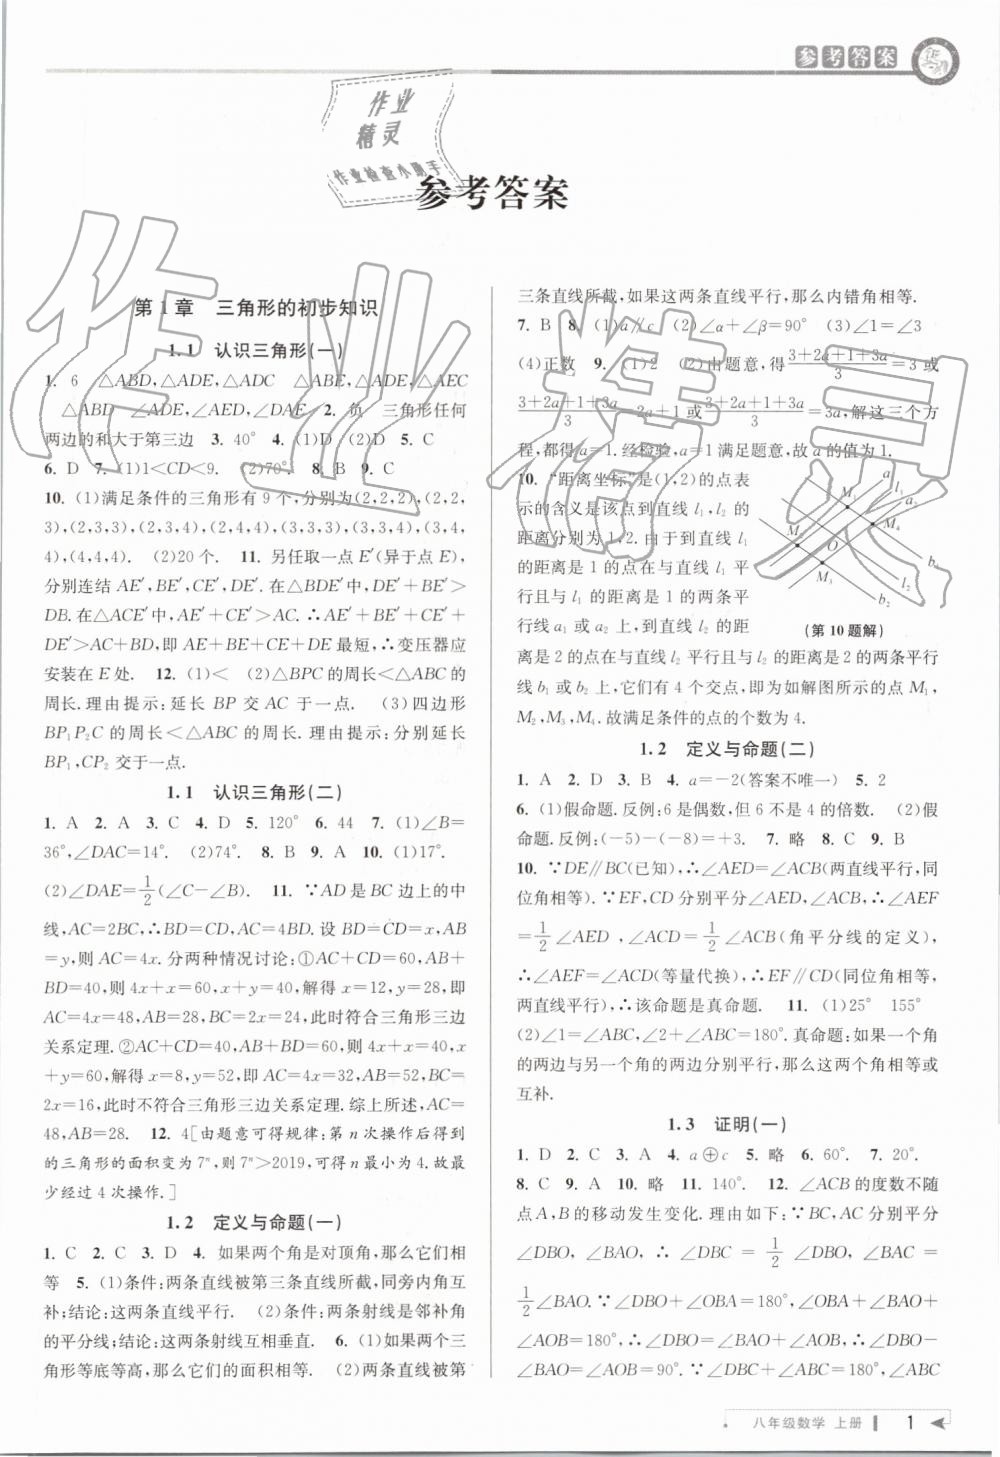 参考答案
作业
精灵
作业检查小助手
参考答案
第1章 三角形的初步知识
1.1 认识三角形(一)
1. 6 △ABD,△ADE,△ADC △ABE,△ADE,△AEC
△ABD ∠ADE,∠AED,∠DAE 2. 负 三角形任何
两边的和大于第三边 3. 40° 4. (1)D (2)D 5. C
6. D 7. (1)1<CD<9. (2)70°. 8. B 9. C
10. (1)满足条件的三角形有9个,分别为(2,2,2),(2,2,
3),(2,3,3),(2,3,4),(2,4,4),(3,3,3),(3,3,4),(3,4,
4),(4,4,4). (2)20个. 11. 另任取一点E′(异于点E),
分别连结AE′,BE′,CE′,DE′.在△BDE′中,DE′+BE′>
DB.在△ACE′中,AE′+CE′>AC.∴AE′+BE′+CE′+
DE′>AC+BD,即AE+BE+CE+DE最短,∴变压器应
安装在E处. 12. (1)< (2)△BPC的周长<△ABC的
周长.理由提示:延长BP交AC于一点. (3)四边形
BP₁P₂C的周长<△ABC的周长.理由提示:分别延长
BP₁,CP₂交于一点.
1.1 认识三角形(二)
1. A 2. A 3. C 4. D 5. 120° 6. 44 7. (1)∠B=
36°,∠DAC=14°. (2)74°. 8. B 9. A 10. (1)17°.
(2)∠DAE=1/2(∠C-∠B). 11. ∵AD是BC边上的中
线,AC=2BC,∴BD=CD,AC=4BD.设BD=CD=x,AB
=y,则AC=4x.分两种情况讨论:①AC+CD=60,AB+
BD=40,则4x+x=60,x+y=40,解得x=12,y=28,即
AC=4x=48,AB=28,BC=2x=24,此时符合三角形三边
关系定理.②AC+CD=40,AB+BD=60,则4x+x=40,x
+y=60,解得x=8,y=52,即AC=4x=32,AB=52,BC=
2x=16,此时不符合三角形三边关系定理.综上所述,AC=
48,AB=28. 12. 4[由题意可得规律:第n次操作后得到
的三角形的面积变为7ⁿ,则7ⁿ>2019,可得n最小为4.故最
少经过4次操作.]
1.2 定义与命题(一)
1. C 2. C 3. D 4. 如果两个角是对顶角,那么它们相
等 5. (1)条件:两条直线被第三条直线所截,同旁内角互
补;结论:这两条直线平行. (2)条件:两条射线是邻补角
的平分线;结论:这两条射线互相垂直. 6. (1)如果两个三
角形等底等高,那么它们的面积相等. (2)两条直线被第
三条直线所截,如果这两条直线平行,那么内错角相等.
7. B 8. (1)a∥c (2)∠α+∠β=90° (3)∠1=∠3
(4)正数 9. (1)2 (2)由题意,得(3+2a+1+3a)/3=3或
(3+2a+1+3a)/3=2a+1或(3+2a+1+3a)/3=3a,解这三个方
程,都得a=1.经检验,a=1满足题意,故a的值为1.
10. “距离坐标”是(1,2)的点表
示的含义是该点到直线l₁,l₂的
距离分别为1,2.由于到直线l₁
的距离是1的点在与直线l₁平
行且与l₁的距离是1的两条平
行线a₁或a₂上,到直线l₂的距
离是2的点在与直线l₂平行且与l₂的距离是2的两条平行
线b₁或b₂上,它们有4个交点,即为如解图所示的点M₁,
M₂,M₃,M₄.故满足条件的点的个数为4.
a₁
l₁
a₂
M₁
M₄
M₂
O
M₃
b₁
l₂
b₂
(第10题解)
1.2 定义与命题(二)
1. A 2. D 3. B 4. a=-2(答案不唯一) 5. 2
6. (1)假命题.反例:6是偶数,但6不是4的倍数. (2)假
命题.反例:(-5)-(-8)=+3. 7. 略 8. C 9. B
10. ∵DE∥BC(已知),∴∠AED=∠ACB(两直线平行,同
位角相等).∵EF,CD分别平分∠AED,∠ACB,∴∠AEF
=1/2∠AED,∠ACD=1/2∠ACB(角平分线的定义),
∴∠AEF=∠ACD(等量代换),∴EF∥CD(同位角相等,
两直线平行),∴该命题是真命题. 11. (1)25° 155°
(2)∠1=∠ABC,∠2+∠ABC=180°.真命题:如果一个角
的两边与另一个角的两边分别平行,那么这两个角相等或
互补.
1.3 证明(一)
1. D 2. C 3. A 4. a⊕c 5. 略 6. 60°. 7. 20°.
8. C 9. A 10. 略 11. 140°. 12. ∠ACB的度数不随
点A,B的移动发生变化.理由如下:∵BC,AC分别平分
∠DBO,∠BAO,∴∠DBC=1/2∠DBO,∠BAC=
1/2∠BAO.∵∠DBO+∠OBA=180°,∠OBA+∠BAO+
∠AOB=180°,∴∠DBO=∠BAO+∠AOB,∴∠DBO-
∠BAO=∠AOB=90°.∵∠DBC+∠ABC=180°,∠ABC
八年级数学 上册 1
作业精灵